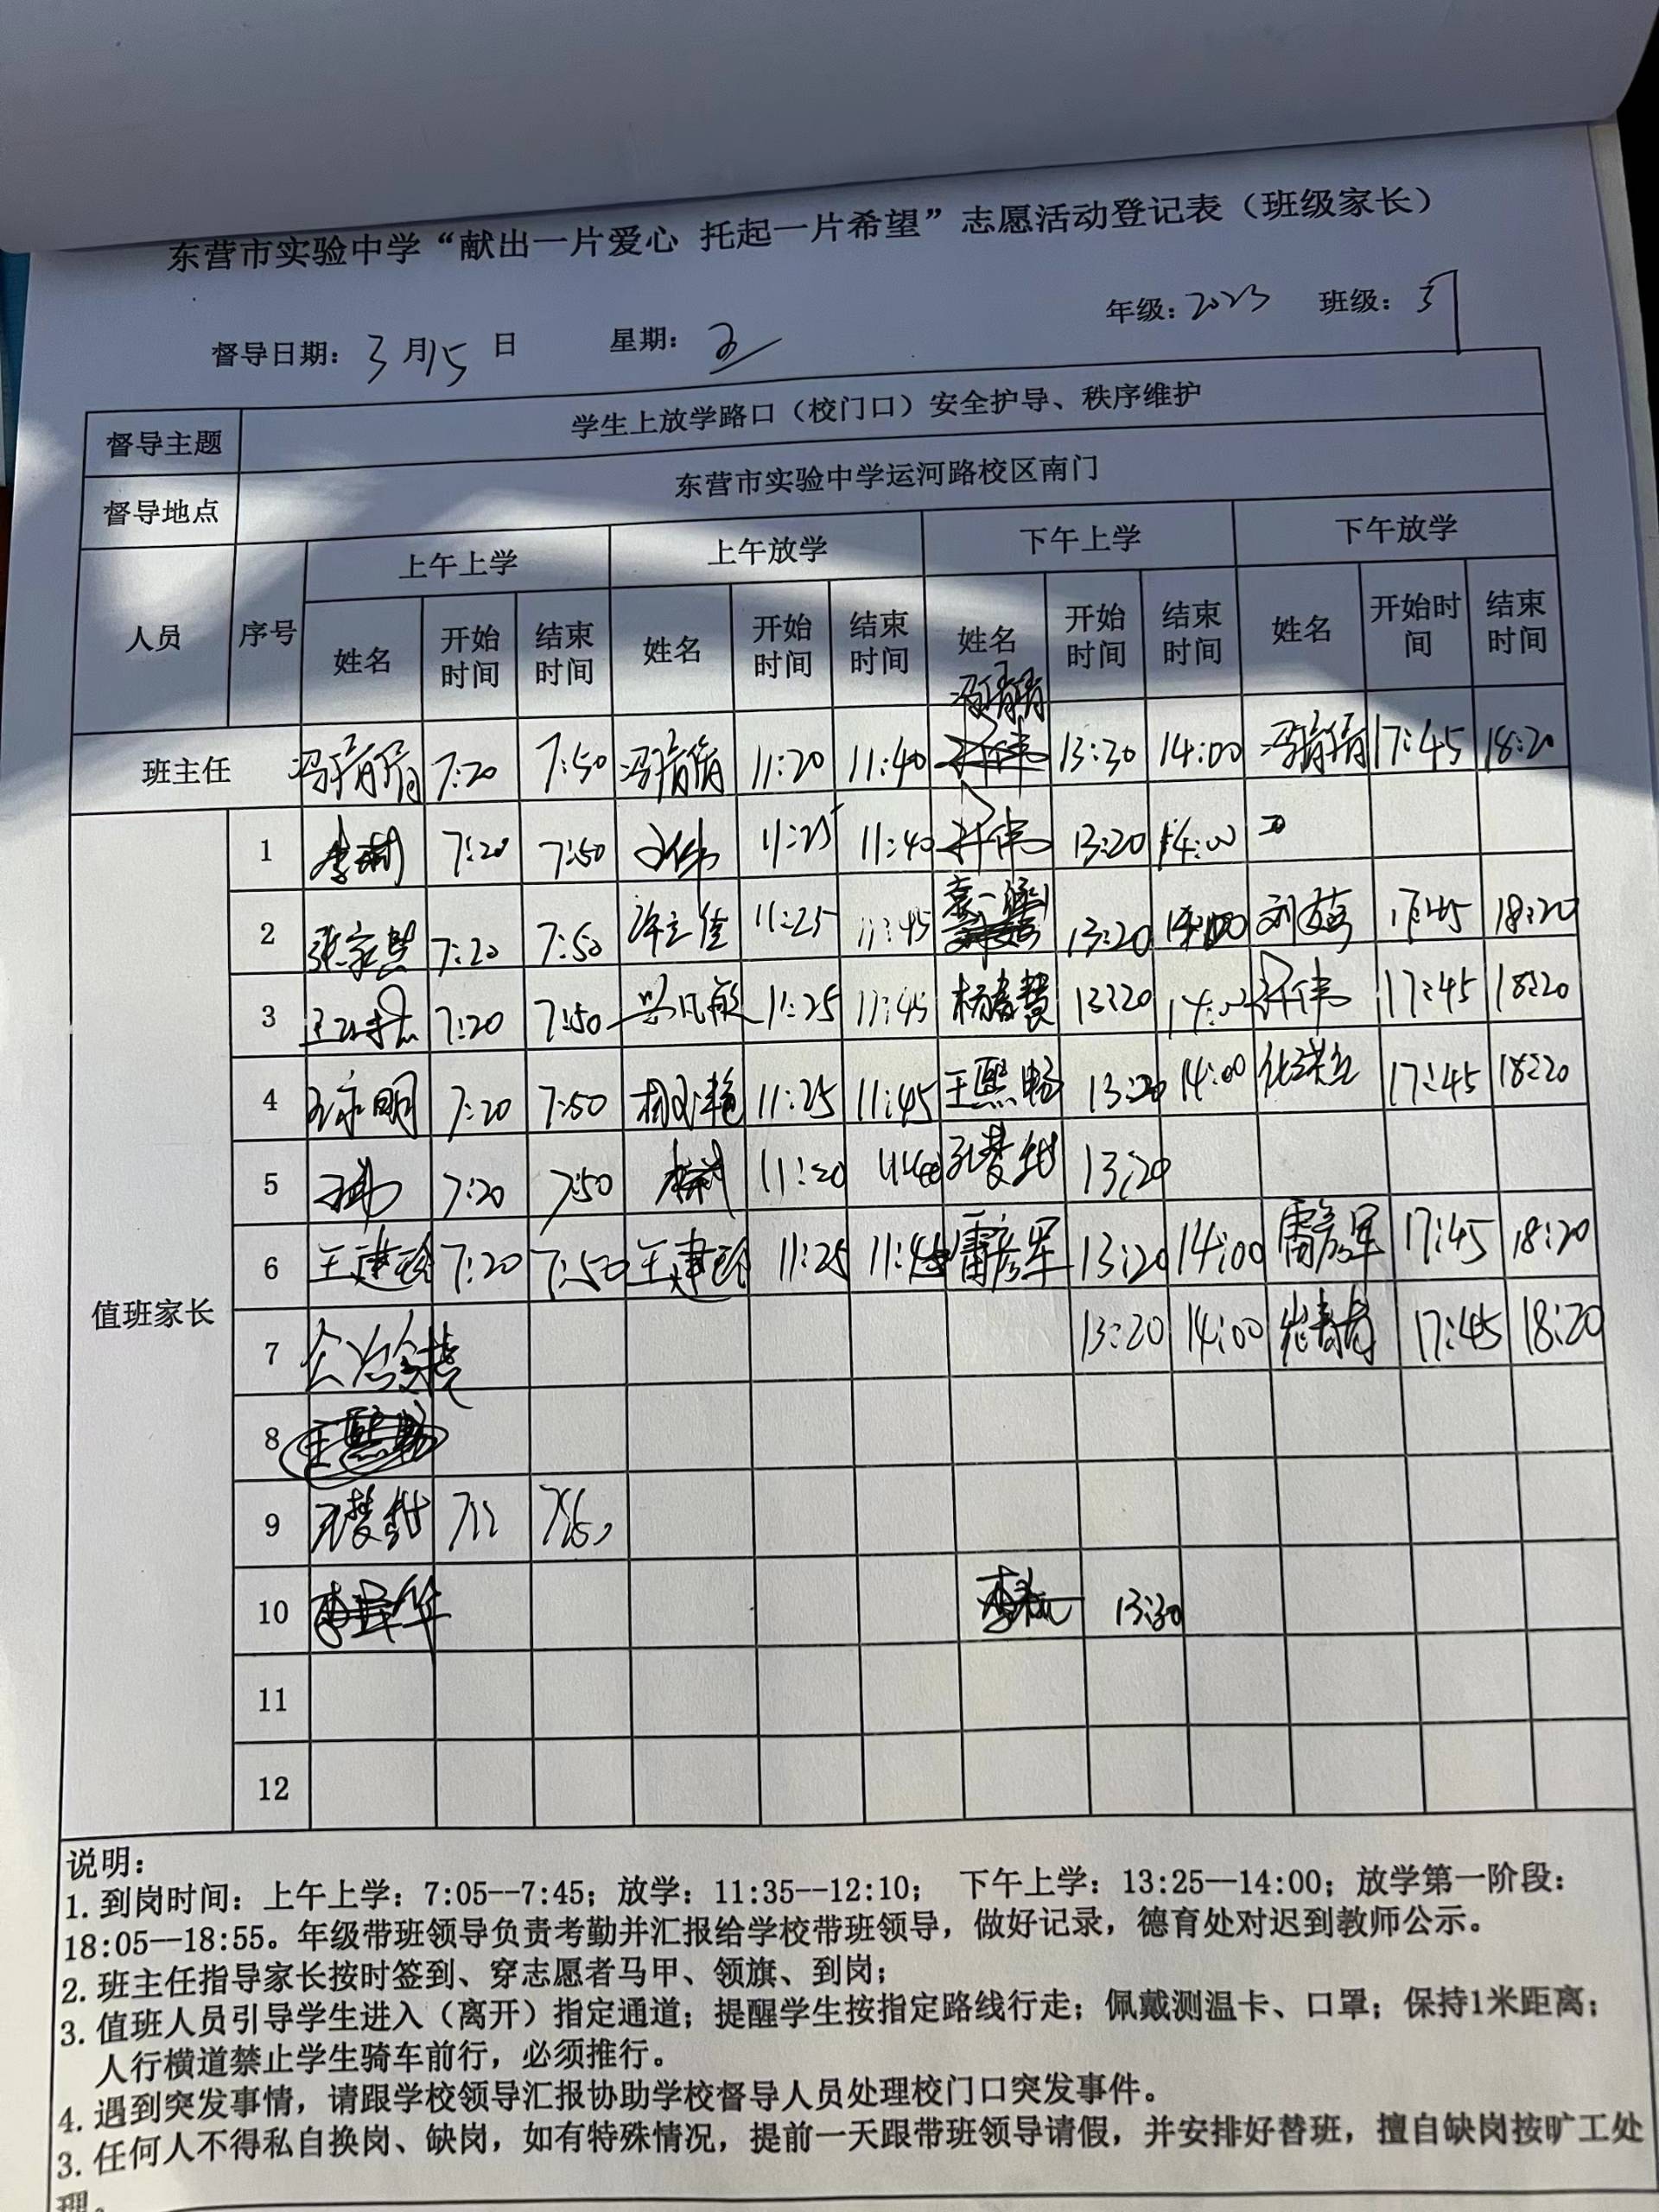 东营市实验中学“献出一片爱心 托起一片希望”志愿活动登记表（班级家长）
督导日期：3月15日 星期：五 年级：2023 班级：37
督导主题 学生上放学路口（校门口）安全护导、秩序维护
督导地点 东营市实验中学运河路校区南门
人员 序号 上午上学 上午放学 下午上学 下午放学
姓名 开始时间 结束时间 姓名 开始时间 结束时间 姓名 开始时间 结束时间 姓名 开始时间 结束时间
班主任 7:20 7:50 11:20 11:40 13:30 14:00 17:45 18:20
值班家长
1 7:20 7:50 11:25 11:40 13:20 14:00
2 张家慧 7:20 7:50 11:25 11:45 13:20 14:00 17:45 18:20
3 7:20 7:50 11:25 11:45 杨春赞 13:20 14:00 17:45 18:20
4 7:20 7:50 11:25 11:45 王熙畅 13:20 14:00 17:45 18:20
5 7:20 7:50 11:20 11:40 孔梦甜 13:20
6 王建玲 7:20 7:50 王建玲 11:25 11:45 雷彦军 13:20 14:00 雷彦军 17:45 18:20
7 13:20 14:00 17:45 18:20
8
9 孔梦甜
10 13:30
11
12
说明：
1. 到岗时间：上午上学：7:05--7:45；放学：11:35--12:10； 下午上学：13:25--14:00；放学第一阶段：
18:05--18:55。年级带班领导负责考勤并汇报给学校带班领导，做好记录，德育处对迟到教师公示。
2. 班主任指导家长按时签到、穿志愿者马甲、领旗、到岗；
3. 值班人员引导学生进入（离开）指定通道；提醒学生按指定路线行走；佩戴测温卡、口罩；保持1米距离；
人行横道禁止学生骑车前行，必须推行。
4. 遇到突发事情，请跟学校领导汇报协助学校督导人员处理校门口突发事件。
3. 任何人不得私自换岗、缺岗，如有特殊情况，提前一天跟带班领导请假，并安排好替班，擅自缺岗按旷工处
理。